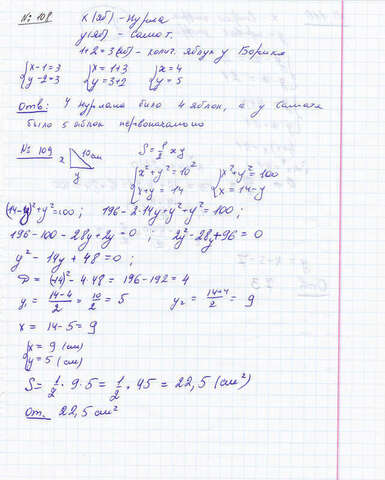 № 108 x (яб) - Нурлан
y (яб) - Самат.
1+2=3 (яб) - колич. яблок у Борика
{x-1=3 {x=1+3 {x=4
{y-2=3 {y=3+2 {y=5
Отв: У Нурлана было 4 яблок, а у Самата
было 5 яблок первоначально
№ 109 x 10 см y S=1/2 xy
{x²+y²=10² {x²+y²=100
{x+y=14 {x=14-y
(14-y)²+y²=100; 196-2·14y+y²+y²=100;
196-100-28y+2y=0; 2y²-28y+96=0
y²-14y+48=0;
D=(-14)²-4·48=196-192=4
y₁=(14-4)/2=10/2=5 y₂=(14+4)/2=9
x=14-5=9
{x=9 (см)
{y=5 (см)
S=1/2·9·5=1/2·45=22,5 (см²)
От. 22,5 см²